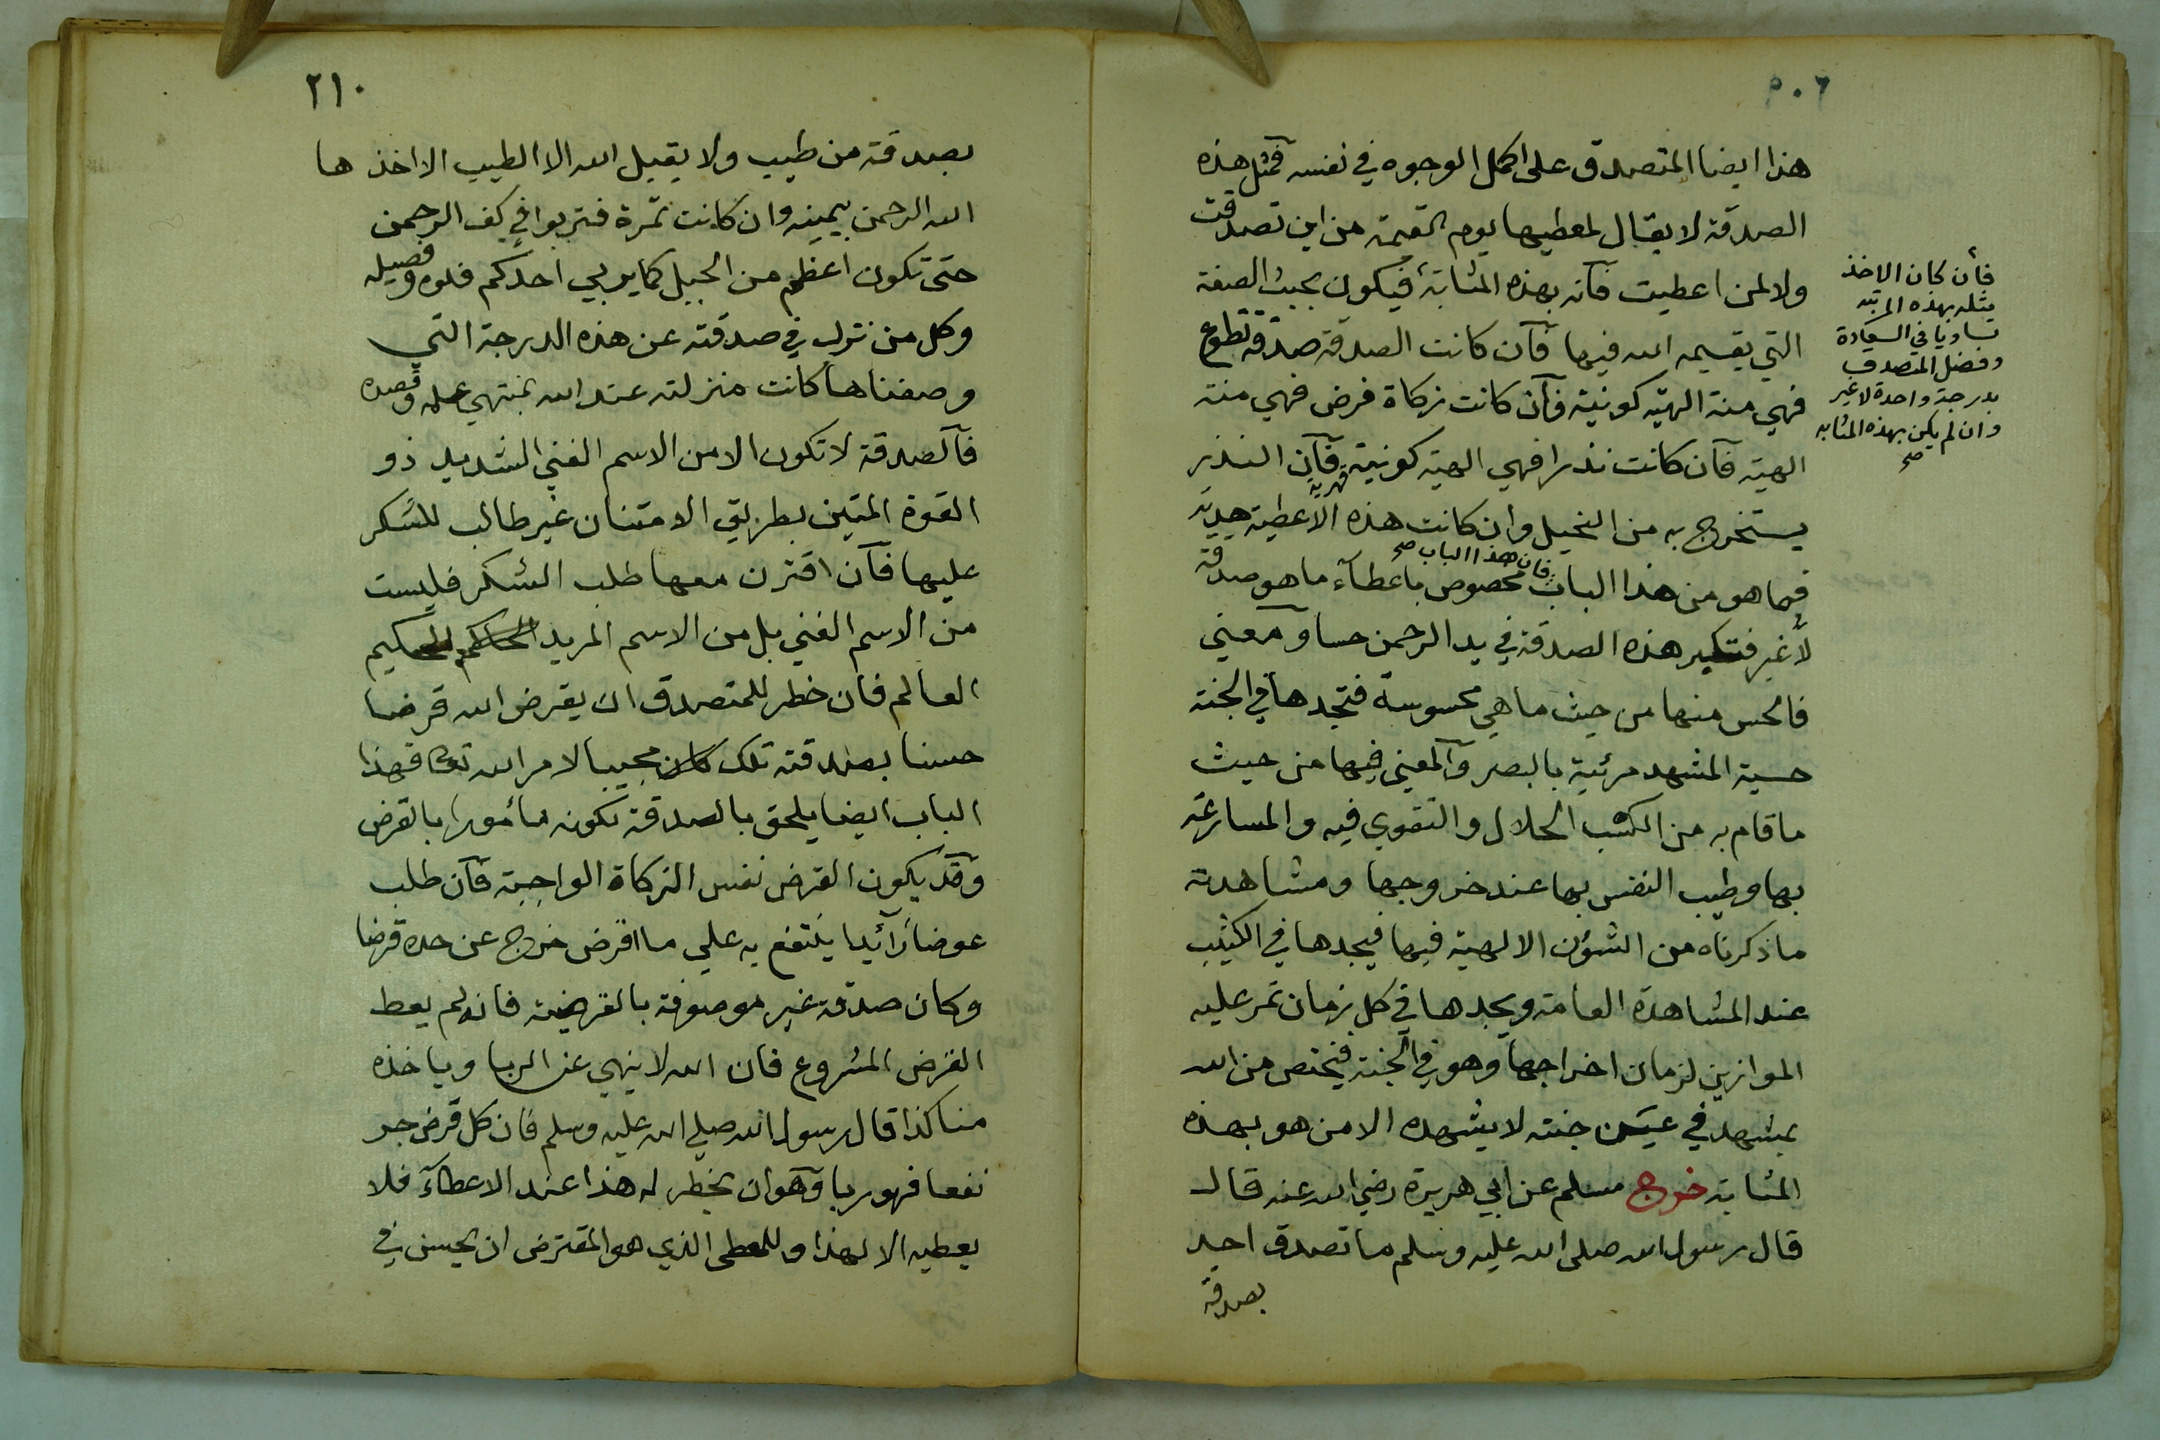 ٢٠٦
هذا ايضا المتصدق على اكمل الوجوه في نفسه فمثل هذه
الصدقة لا يقال لمعطيها يوم القيمة من اين تصدقت
ولا لمن اعطيت فانه بهذه المثابة فيكون بحيث الصفة
التي يقسمه الله فيها فان كانت الصدقة صدقة تطوع
فهي منة الهية كونية فان كانت زكاة فرض فهي منة
الهية فان كانت نذرا فهي الهية كونية قهرية فان النذر
يستخرج به من البخيل وان كانت هذه الاعطية هدية
فما هو من هذا الباب فان هذا الباب صح مخصوص باعطاء ما هو صدقة
لا غير فتكبر هذه الصدقة في يد الرحمن حسا ومعنى
فالحس منها من حيث ما هي محسوسة فتجدها في الجنة
حسية المشهد مرئية بالبصر والمعنى فيها من حيث
ما قام به من الكسب الحلال والتقوى فيه والمسارعة
بها وطيب النفس بها عند خروجها ومشاهدة
ما ذكرناه من الشؤن الالهية فيها فيجدها في الكثيب
عند المشاهدة العامة ويجدها في كل زمان تمر عليه
الموازين لزمان اخراجها وهو في الجنة فيختص من الله
بمشهد في عين جنته لا يشهده الا من هو بهذه
المثابة خرج مسلم عن ابي هريرة رضي الله عنه قال
قال رسول الله صلى الله عليه وسلم ما تصدق احد
بصدقة
فان كان الاخذ
مثله بهذه المرتبة
تساويا في السعادة
وفضل المتصدق
بدرجة واحدة لا غير
وان لم يكن بهذه المثابه
صح
٢١٠
بصدقة من طيب ولا يقبل الله الا الطيب الا اخذها
الله الرحمن بيمينه وان كانت تمرة فتربوا في كف الرحمن
حتى تكون اعظم من الجبل كما يربي احدكم فلوه وفصيله
وكل من نزل في صدقته عن هذه الدرجة التي
وصفناها كانت منزلته عند الله بمنتهي علمه وقصده
فالصدقة لا تكون الا من الاسم الغني الشديد ذو
القوة المتين بطريق الامتنان غير طالب للشكر
عليها فان اقترن معها طلب الشكر فليست
من الاسم الغني بل من الاسم المريد الحكيم
العالم فان خطر للمتصدق ان يقرض الله قرضا
حسنا بصدقته تلك كان مجيبا لامر الله تعا فهذا
الباب ايضا يلحق بالصدقة لكونه مأمورا بالقرض
وقد يكون القرض نفس الزكاة الواجبة فان طلب
عوضا زائدا ينتفع به علي ما اقرض خرج عن حده قرضا
وكان صدقة غير موصوفة بالقرضية فانه لم يعط
القرض المشروع فان الله لا ينهي عن الربا وياخذه
منا كذا قال رسول الله صلي الله عليه وسلم فان كل قرض جر
نفعا فهو ربا وهو ان يخطر له هذا عند الاعطاء فلا
يعطيه الا لهذا وللمعطى الذي هو المقترض ان يحسن في